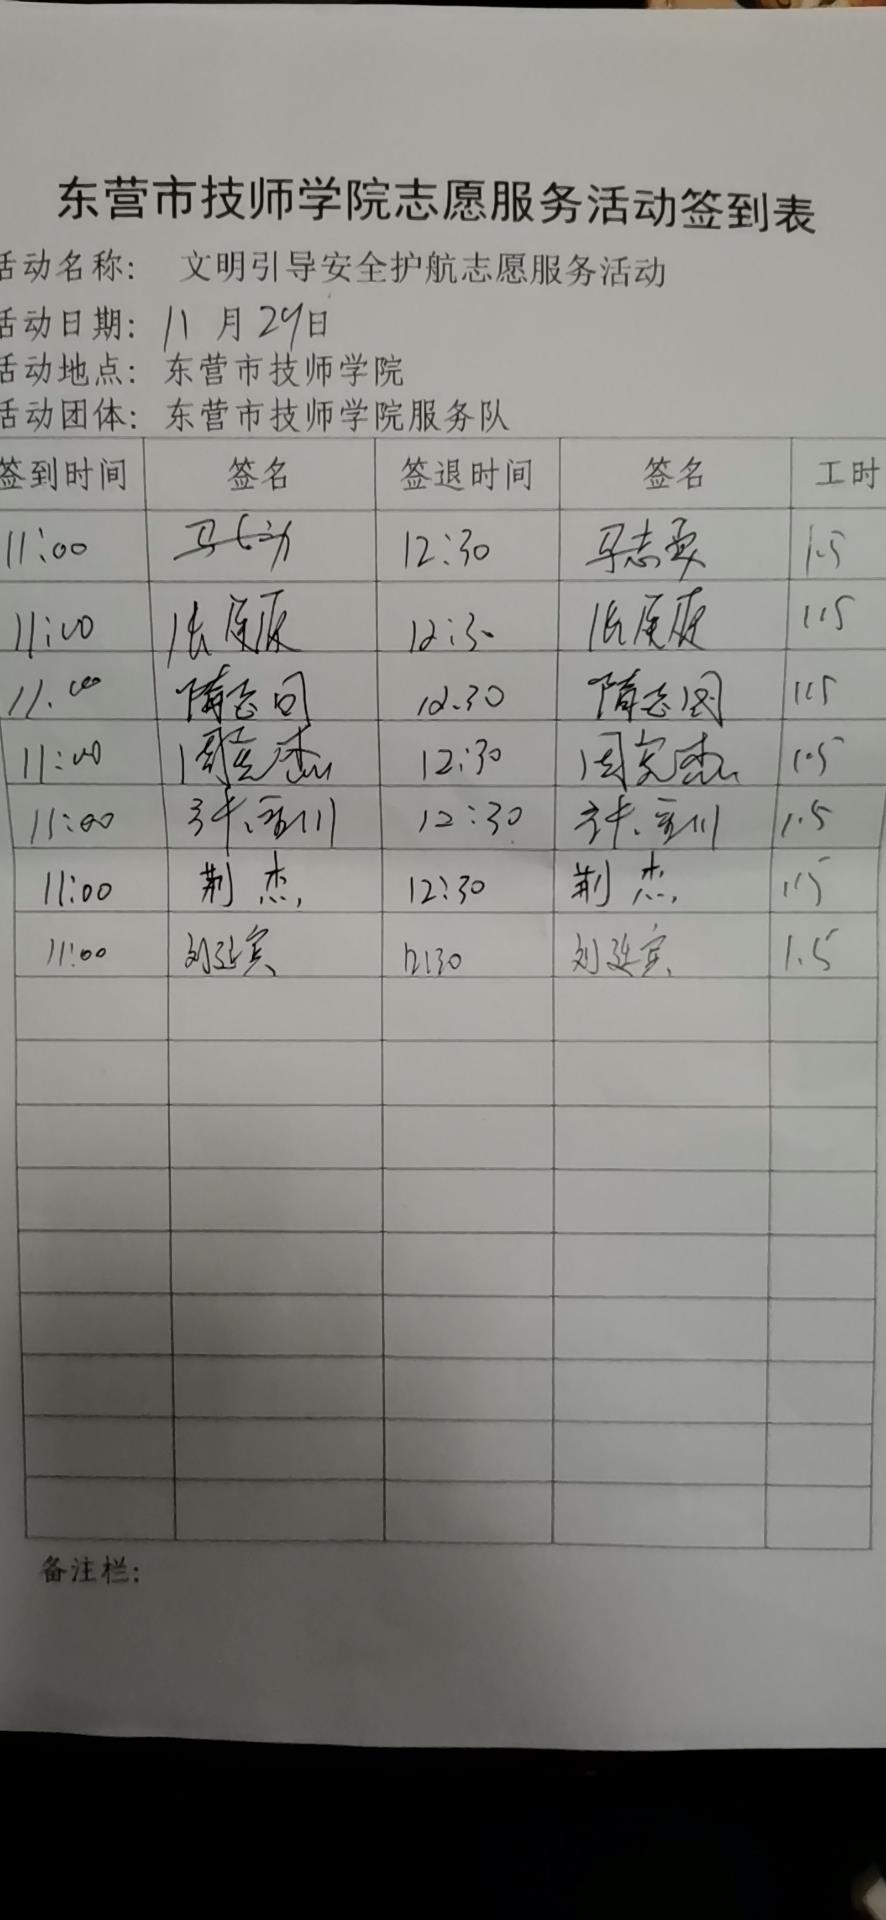 东营市技师学院志愿服务活动签到表
活动名称: 文明引导安全护航志愿服务活动
活动日期: 11月29日
活动地点: 东营市技师学院
活动团体: 东营市技师学院服务队
签到时间 签名 签退时间 签名 工时
11:00 12:30 1.5
11:00 12:30 1.5
11:00 12:30 1.5
11:00 12:30 1.5
11:00 12:30 1.5
11:00 荆杰 12:30 荆杰 1.5
11:00 刘延宾 12:30 刘延宾 1.5
备注栏: